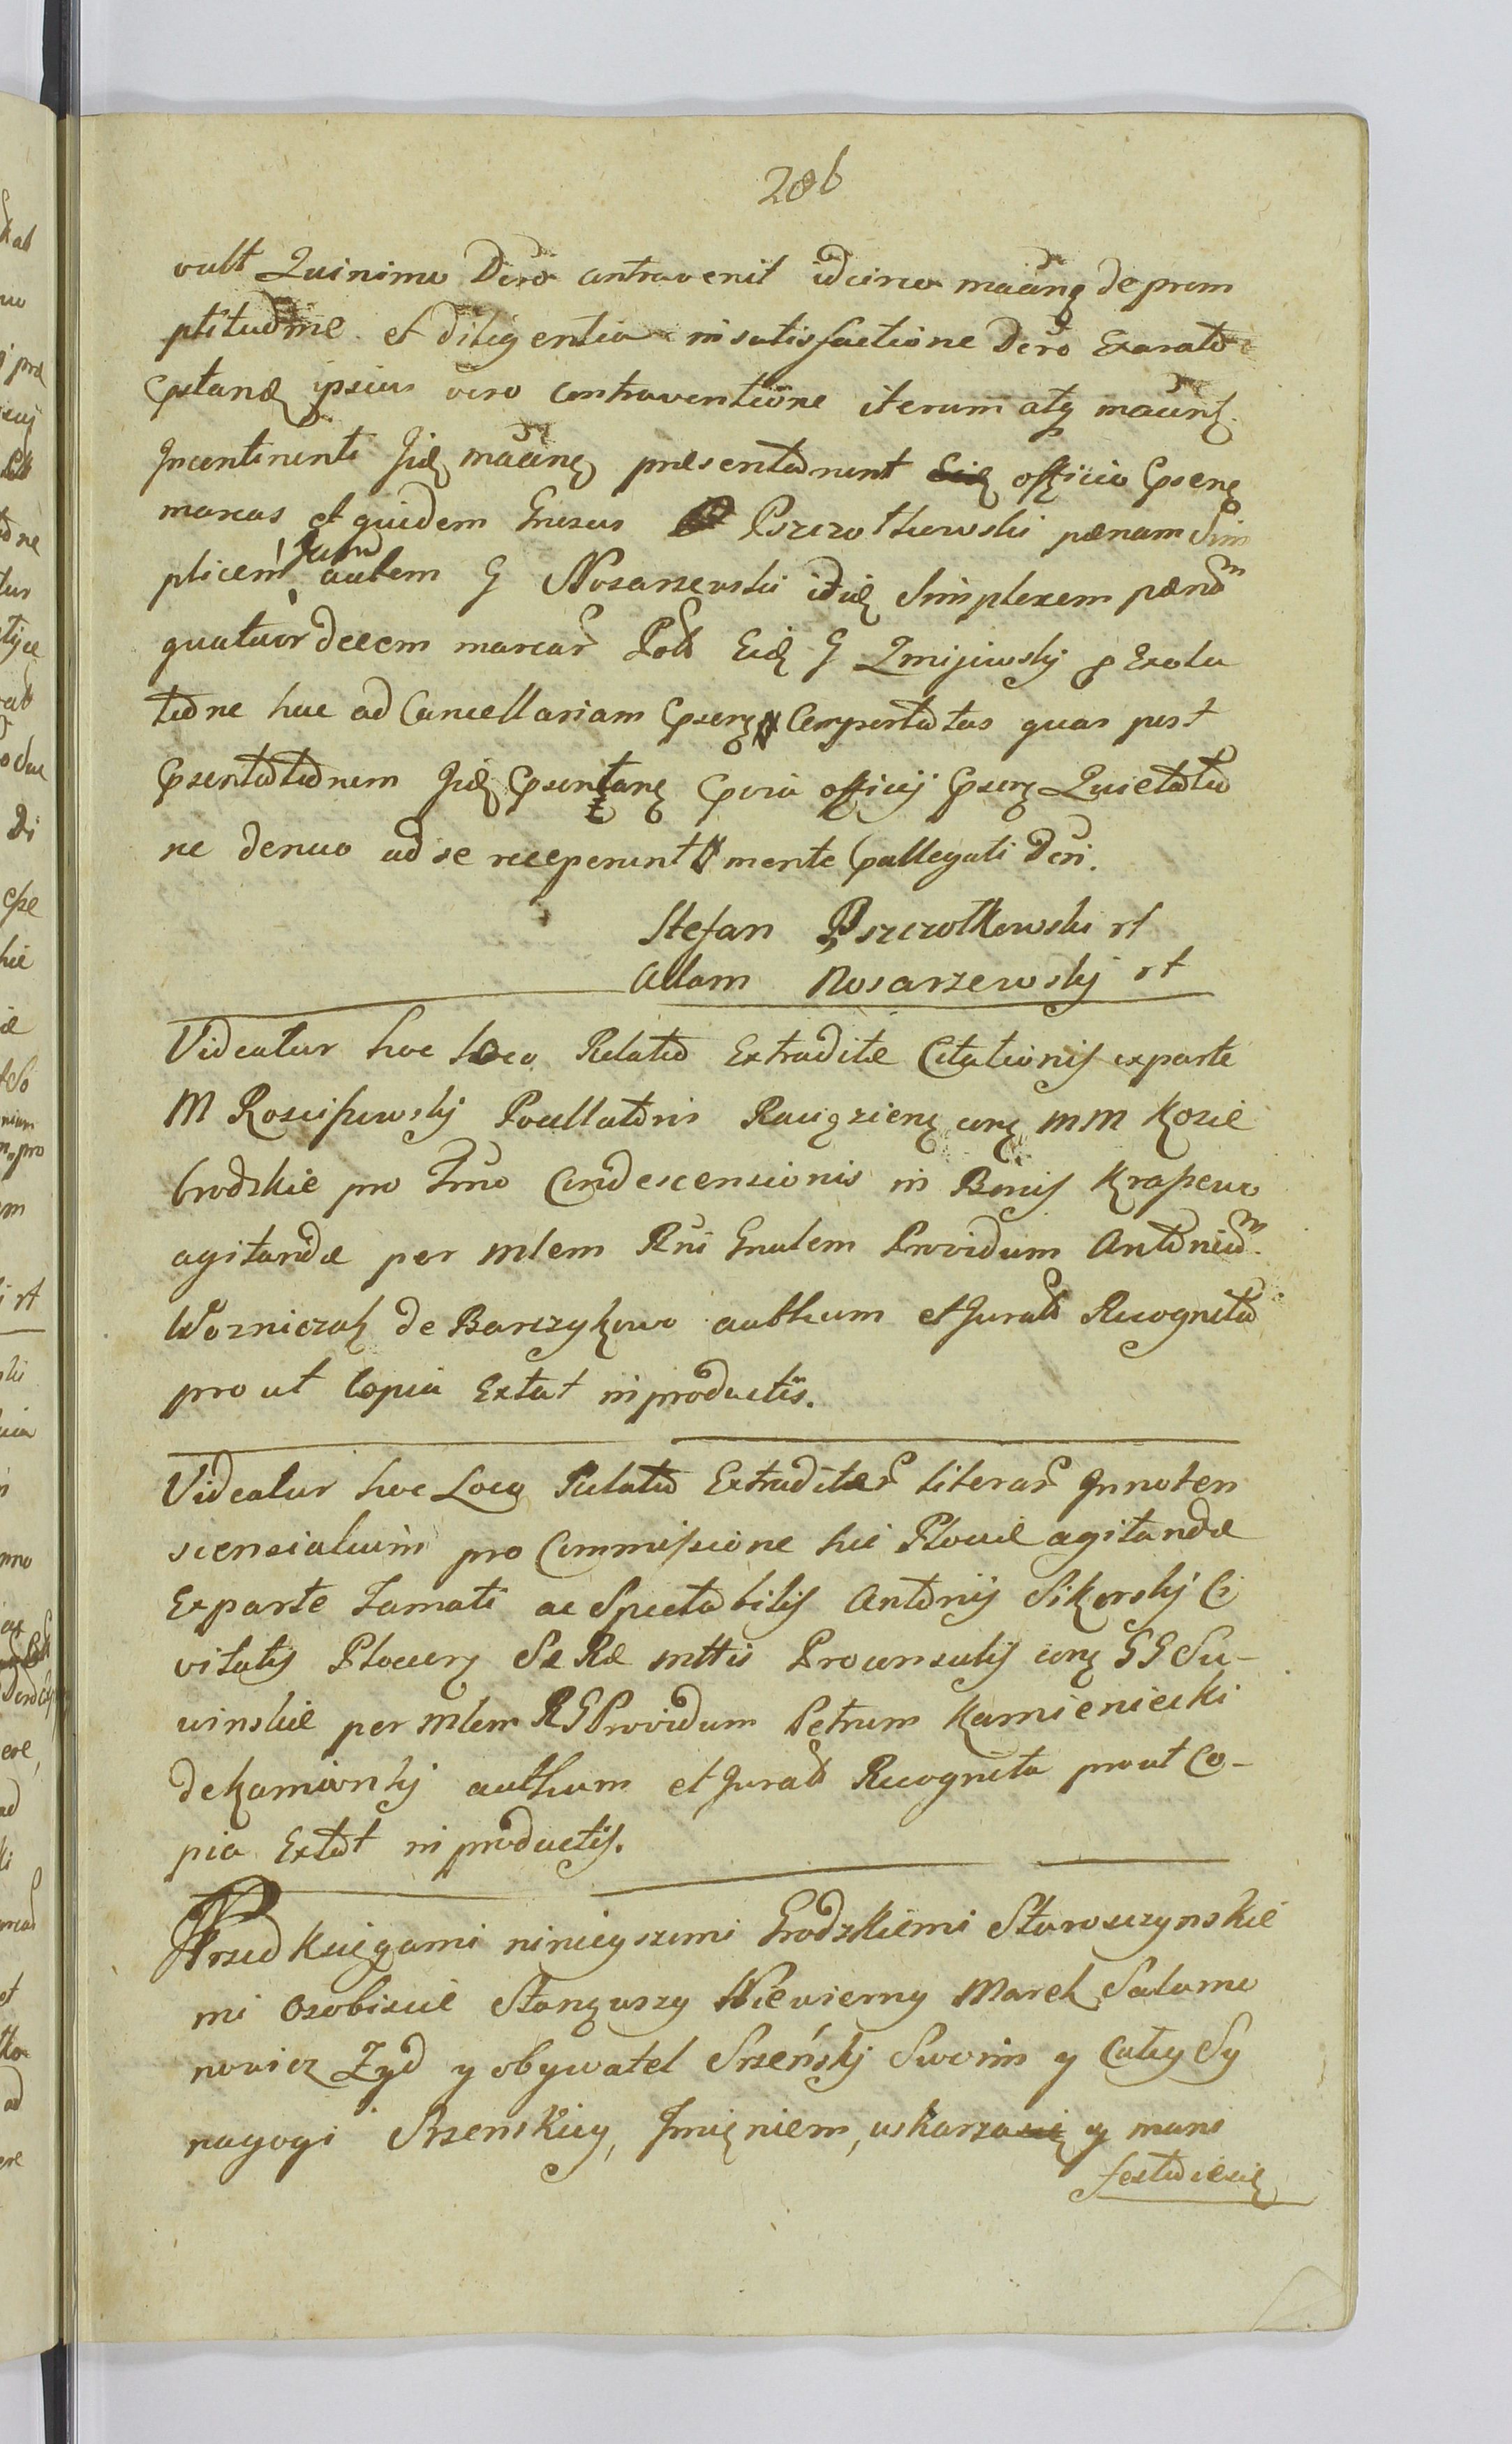 206
vult Quinimo Dcro contravenit idcirco macanę de prom
ptitudine et diligentia in satisfactione Dcro Exarato
Cpstand ipsius vero contraventione iterum atq macanę
Incontinenti Jidę macanę præsentarunt officio Cpsenę
marcas et quidem Gnrsus Pszczołkowski pænam Sim
plicem, autem G Nosarzewski itidę Simplexem pænam
quatuor decem marcar Polł Eidę G Zmijewskj p Exolu
tione huc ad Cancellariam Cpsenę Comportatas quas post
Cpsentationem Jidę Cpsentanę Cpvia officij Cpsenę Quietatio
ne denuo ad se receperunt mente Cpallegati Dcri.
Stefan Pszczołkowski rł
Adam Nosarzewskj rł
Videatur hoc loco Relatio Extraditæ Citationis exparte
M Rosciszewskj Pocillatoris Raciązienę conę MM Kozie
brodzkie pro Trno Condescensionis in Bonis Krajewo
agitandæ per mlem Rni Gnalem Providum Antonium
Wozniczak de Barczykowo authum et Jurał Recognita
pro ut Copia Extat in productis.
Videatur hoc Loco Relatio Extraditar literar Innoten
scensialium pro Commissione hic Plociæ agitandæ
Exparte Famati ac Spectabilis Antonij Sikorskj Ci
vitatis Plocenę Sæ Ræ mttis Proconsulis conę GG Su-
winskie per mlem RG Providum Petrum Kamieniecki
de Kamionkj authum et Jurał Recognita prout Co-
pia Extat in productis.
Przed Księgami ninieyszemi Grodzkiemi Starosczynskie
mi Osobiscie Stanąwszy Niewierny Marek Salamo
nowicz Zyd y obywatel Srzeńskj Swoim y Całey Sy
nagogi Srzenskiey, Imięniem, uskarza y mani
festuiesię